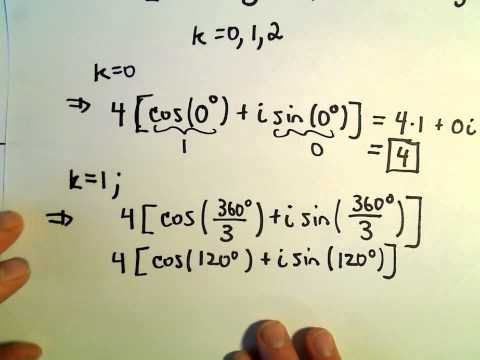 k=0,1,2
k=0
⇒ 4[cos(0°)+i sin(0°)] = 4·1 + 0i
1 0 = 4
k=1;
⇒ 4[cos(360°/3)+i sin(360°/3)]
4[cos(120°)+i sin(120°)]